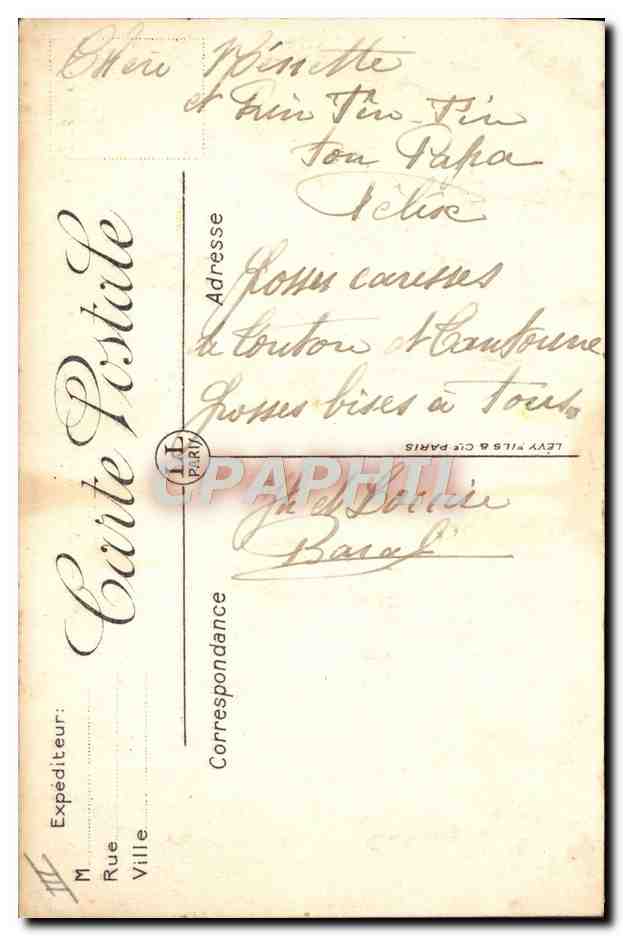 Chère Nénette
et Rin Tin-Tin
ton Papa
Félix
Grosses caresses
à Touton et
Grosses bises à tous
et Louise
Carte Postale
Adresse
Correspondance
LL
PARIS
LÉVY FILS & Cie PARIS
Expéditeur:
M
Rue
Ville
III
CPAPHIL